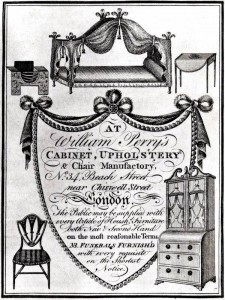 AT
William Perry's
CABINET, UPHOLSTERY
& Chair Manufactory,
No. 34, Beach Street,
near Chiswell Street
London.
The Public may be supplied with
every Article of Housh.d Furniture
both New & Second Hand
on the most reasonable Terms
N.B. FUNERALS FURNISH'D
with every requisite
on the Shortest
Notice.